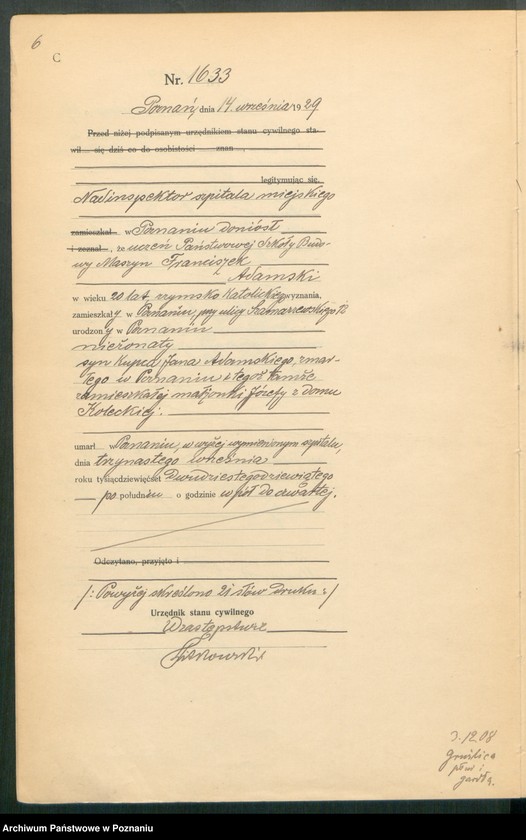 6
C
Nr. 1633
Poznań, dnia 14 września 1929
Przed niżej podpisanym urzędnikiem stanu cywilnego sta-
wił się dziś co do osobistości znan ,
legitymując się,
Nadinspektor szpitala miejskiego
zamieszkał w Poznaniu doniósł
i zeznał , że uczeń Państwowej Szkoły Budo-
wy Maszyn Franciszek
Adamski
w wieku 20 lat, rzymsko katolickiego wyznania,
zamieszkały w Poznaniu, przy ulicy Szamarzewskiego 12
urodzony w Poznaniu
nieżonaty
syn kupca Jana Adamskiego, zmar-
łego w Poznaniu i tegoż tamże
zamieszkałej małżonki Józefy z domu
Kołeckiej.
umarł w Poznaniu, w wyżej wymienionym szpitalu,
dnia trzynastego września
roku tysiącdziewięćset dwudziestegodziewiątego
po południu o godzinie wpół do czwartej.
Odczytano, przyjęto i
/: Powyżej skreślono 21 słów druku :/
Urzędnik stanu cywilnego
W zastępstwie
3.12.08
Gruźlica
płuc i
gardła.
Archiwum Państwowe w Poznaniu